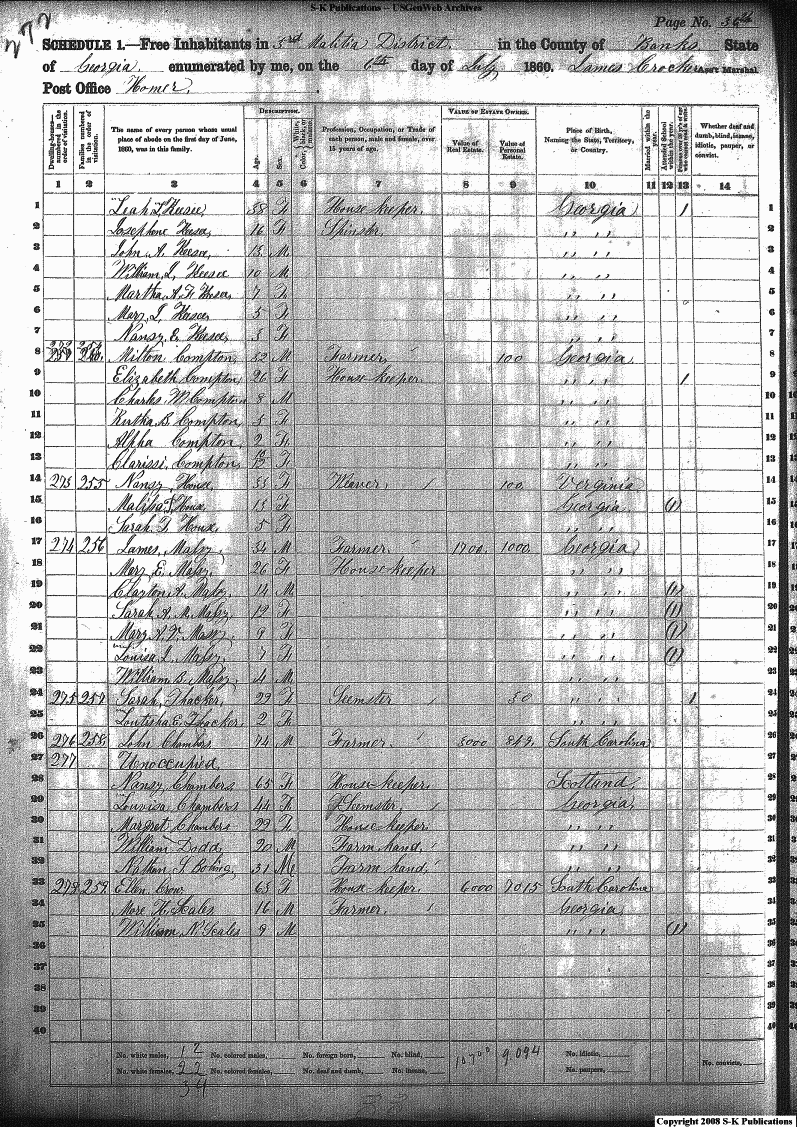 S-K Publications -- USGenWeb Archives
272
Page No. 36th
SCHEDULE 1.—Free Inhabitants in 3rd Malitia District. in the County of Banks State
of Georgia. enumerated by me, on the 6th day of July 1860. James Crocker Ass't Marshal
Post Office Homer.
Dwelling-houses—numbered in the order of visitation.
Families numbered in the order of visitation.
The name of every person whose usual place of abode on the first day of June, 1860, was in this family.
DESCRIPTION.
Age.
Sex.
Color, White, black, or mulatto.
Profession, Occupation, or Trade of each person, male and female, over 15 years of age.
VALUE OF ESTATE OWNED.
Value of Real Estate.
Value of Personal Estate.
Place of Birth, Naming the State, Territory, or Country.
Married within the year.
Attended School within the year.
Whether deaf and dumb, blind, insane, idiotic, pauper, or convict.
1 2 3 4 5 6 7 8 9 10 11 12 13 14
1 Leah L. 38 F House keeper. Georgia 1 1
2 Josephine 16 F Spinster. " " 2
3 John A. 13 M " " 3
4 William L. 10 M " " 4
5 Martha A. F. 7 F " " 5
6 Mary 5 F " " 6
7 Nansy E. 3 F " " 7
8 Milton Compton, 32 M Farmer 100 Georgia 8
9 Elizabeth Compton, 26 F House-keeper. " " 1 9
10 Charles W. Compton 8 M " " 10
11 B. Compton, 5 F " " 11
12 Alpha Compton, 2 F " " 12
13 Clarissi, Compton, F " " 13
14 273 255 Nansy House, 33 F 100 Verginia 14
15 Malisa House 13 F Georgia (1) 15
16 Sarah F. House 5 F " " 16
17 274 256 James, Massy, 34 M Farmer. 1700. 1000. Georgia 17
18 Mary E. Massy, 26 F House-keeper " " 18
19 Clayton A. Massy, 14 M " " (1) 19
20 Sarah A. M. Massy 12 F " " (1) 20
21 Mary A. Massy 9 F " " (1) 21
22 Louisa Massy 7 F " " (1) 22
23 William B. Massy. 4 M " " 23
24 275 257 Sarah, Thacker, 29 F Seemster 50 " " 1 24
25 E. Thacker, 2 F " " 25
26 276 258 John Chambers 74 M Farmer. 3000 849. South Carolina 26
27 277 Unoccupied. 27
28 Nansy, Chambers 65 F House-keeper. Scotland 28
29 Louvisa, Chambers 44 F Seemster, Georgia 29
30 Margret Chambers 29 F House-keeper. " " 30
31 William Dodd 20 M Farm hand. " " 31
32 Nathan 31 M Farm hand. " " 32
33 278 259 Ellen Crow 63 F House-keeper. 6000 7015 South Carolina 33
34 Scales 16 M Farmer. Georgia 34
35 William N. Scales 9 M " " (1) 35
36 36
37 37
38 38
39 39
40 40
No. white males, 12 No. colored males, No. foreign born, No. blind, 10700 9,094 No. idiotic,
No. white females, 22 No. colored females, No. deaf and dumb, No. insane, No. paupers, No. convicts,
34
Copyright 2008 S-K Publications